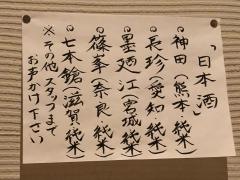 「日本酒」
・神田(熊本・純米)
・長珍(愛知・純米)
・墨廼江(宮城・純米)
・篠峯(奈良・純米)
・七本鎗(滋賀・純米)
※その他スタッフまで
お声かけ下さい